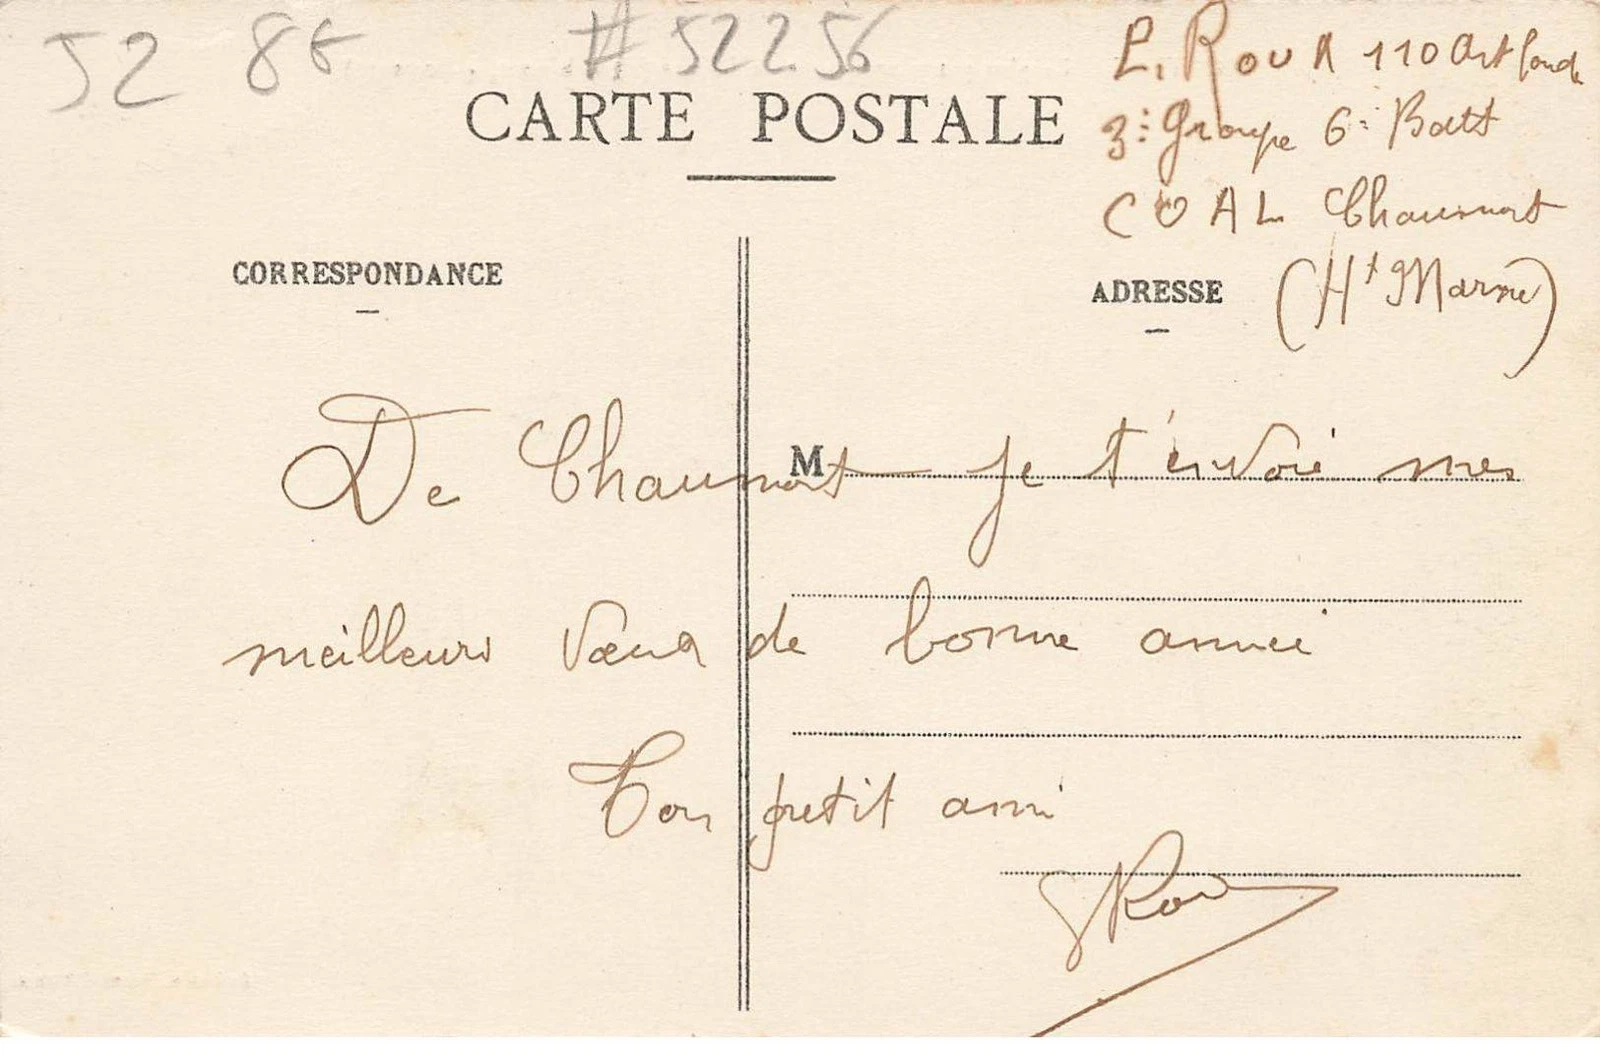 52 8€ #52256
CARTE POSTALE
L. Roux 110 Art lourde
3e Groupe 6e Batt
COAL Chaumont
(Hte Marne)
CORRESPONDANCE
ADRESSE
M
De Chaumont je t'envoie mes
meilleurs vœux de bonne année
Ton petit ami
LRoux